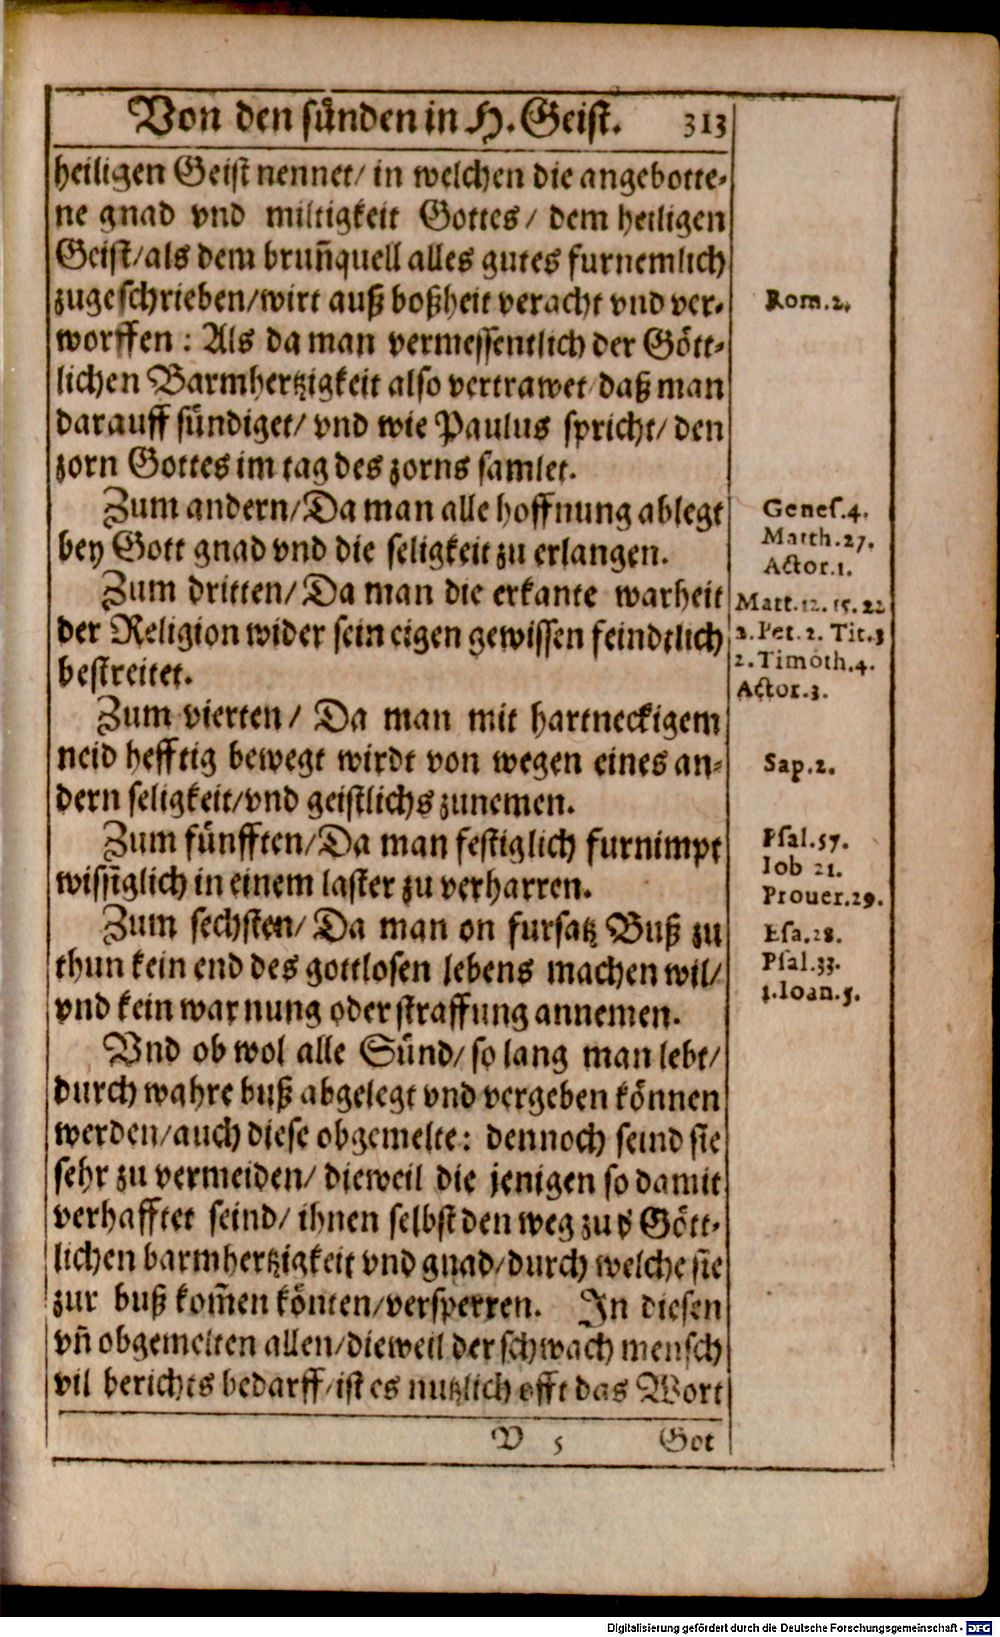 Von den sünden in H. Geist. 313
heiligen Geist nennet/ in welchen die angebotte-
ne gnad vnd miltigkeit Gottes/ dem heiligen
Geist/als dem brun̄quell alles gutes furnemlich
zugeschrieben/wirt auß boßheit veracht vnd ver-
worffen: Als da man vermessentlich der Gött-
lichen Barmhertzigkeit also vertrawet/daß man
darauff sündiget/ vnd wie Paulus spricht/ den
zorn Gottes im tag des zorns samlet.
Zum andern/Da man alle hoffnung ablegt
bey Gott gnad vnd die seligkeit zu erlangen.
Zum dritten/ Da man die erkante warheit
der Religion wider sein eigen gewissen feindtlich
bestreitet.
Zum vierten/ Da man mit hartneckigem
neid hefftig bewegt wirdt von wegen eines an-
dern seligkeit/vnd geistlichs zunemen.
Zum fünfften/Da man festiglich furnimpt
wissiglich in einem laster zu verharren.
Zum sechsten/ Da man on fursatz Buß zu
thun kein end des gottlosen lebens machen wil/
vnd kein warnung oder straffung annemen.
Vnd ob wol alle Sünd/ so lang man lebt/
durch wahre buß abgelegt vnd vergeben können
werden/auch diese obgemelte: dennoch seind sie
sehr zu vermeiden/ dieweil die jenigen so damit
verhafftet seind/ ihnen selbst den weg zur Gött-
lichen barmhertzigkeit vnd gnad/durch welche sie
zur buß kom̄en könten/versperren. In diesen
vn̄ obgemelten allen/dieweil der schwach mensch
vil berichts bedarff/ist es nutzlich offt das Wort
V 5 Got
Rom.2.
Genes.4.
Matth.27.
Actor.1.
Matt.12.15.22
2.Pet.2. Tit.3
2.Timoth.4.
Actor.3.
Sap.2.
Psal.57.
Iob 21.
Prouer.29.
Esa.28.
Psal.33.
1.Ioan.5.
Digitalisierung gefördert durch die Deutsche Forschungsgemeinschaft - DFG